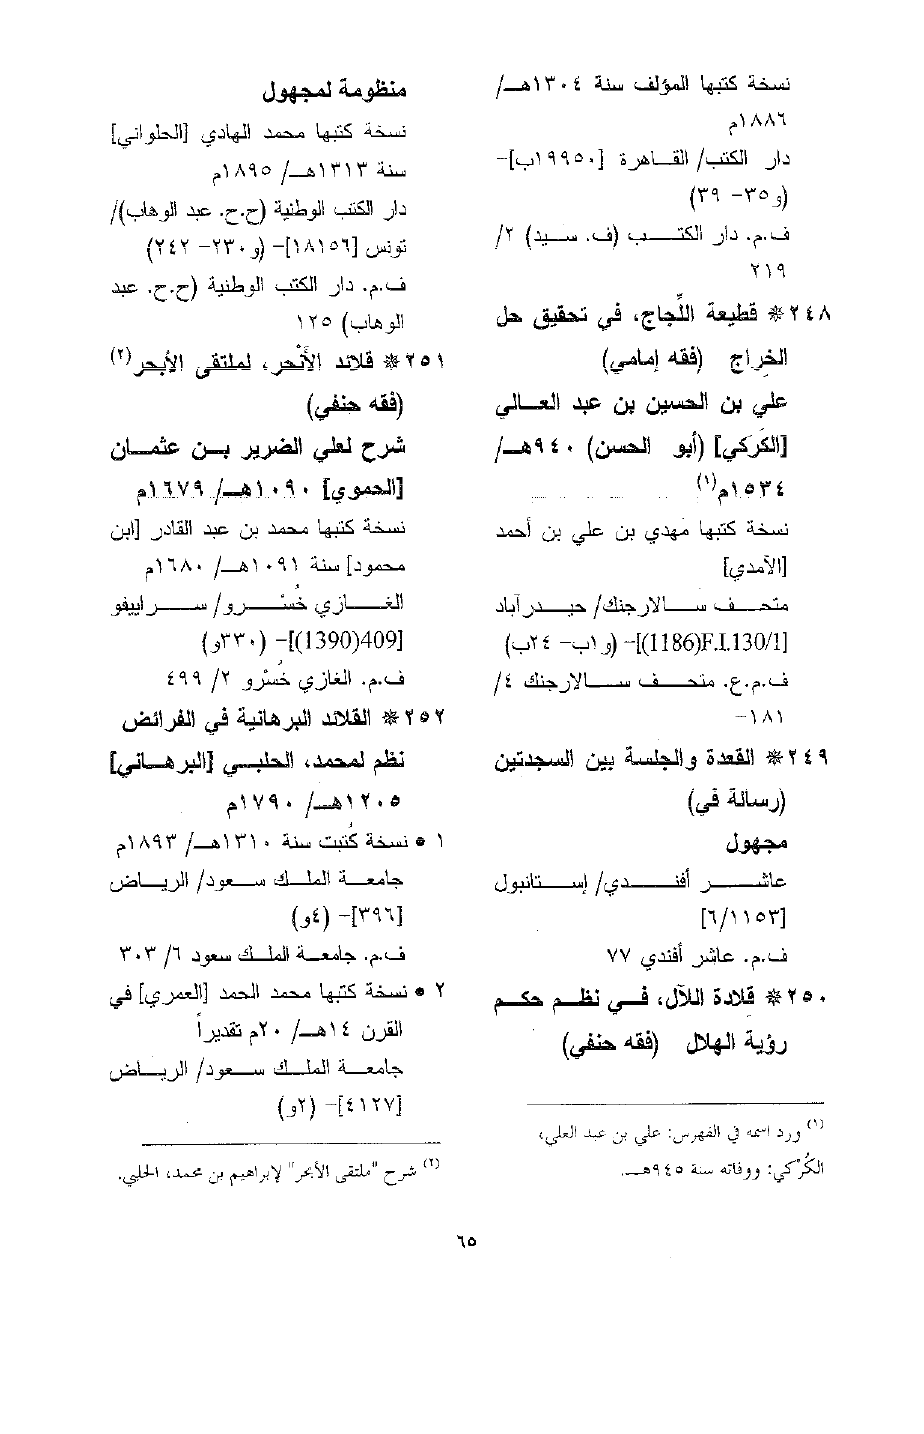 نسخة كتبها المؤلف سنة ١٣٠٤هـ/
١٨٨٦م
دار الكتب/ القاهرة [١٩٩٥٠ب]-
(و٣٥- ٣٩)
ف.م. دار الكتب (ف. سيد) ٢/
٢١٩
٢٤٨* قطيعة اللِّجاج، في تحقيق حل
الخراج (فقه إمامي)
علي بن الحسين بن عبد العالي
[الكَرَكي] (أبو الحسن) ٩٤٠هـ/
١٥٣٤م(١)
نسخة كتبها مهدي بن علي بن أحمد
[الآمدي]
متحف سالارجنك/ حيدرآباد
[1186)F.I.130/1)]- (و١ب- ٢٤ب)
ف.م.ع. متحف سالارجنك ٤/
١٨١-
٢٤٩* القعدة والجلسة بين السجدتين
(رسالة في)
مجهول
عاشر أفندي/ إستانبول
[٦/١١٥٣]
ف.م. عاشر أفندي ٧٧
٢٥٠* قلادة اللآل، في نظم حكم
رؤية الهلال (فقه حنفي)
(١) ورد اسمه في الفهرس: علي بن عبد العلي،
الكُرْكي: ووفاته سنة ٩٤٥هـ.
منظومة لمجهول
نسخة كتبها محمد الهادي [الحلواني]
سنة ١٣١٣هـ/ ١٨٩٥م
دار الكتب الوطنية (ح.ح. عبد الوهاب)/
تونس [١٨١٥٦]- (و٢٣٠- ٢٤٢)
ف.م. دار الكتب الوطنية (ح.ح. عبد
الوهاب) ١٢٥
٢٥١* قلائد الأنْحر، لملتقى الأبحر(٢)
(فقه حنفي)
شرح لعلي الضرير بن عثمان
[الحموي] ١٠٩٠هـ/ ١٦٧٩م
نسخة كتبها محمد بن عبد القادر [ابن
محمود] سنة ١٠٩١هـ/ ١٦٨٠م
الغازي خُسْرو/ سراييفو
[409(1390)]- (٣٣٠و)
ف.م. الغازي خُسْرو ٢/ ٤٩٩
٢٥٢* القلائد البرهانية في الفرائض
نظم لمحمد، الحلبي [البرهاني]
١٢٠٥هـ/ ١٧٩٠م
١ • نسخة كُتبت سنة ١٣١٠هـ/ ١٨٩٣م
جامعة الملك سعود/ الرياض
[٣٩٦]- (٤و)
ف.م. جامعة الملك سعود ٦/ ٣٠٣
٢ • نسخة كتبها محمد الحمد [العمري] في
القرن ١٤هـ/ ٢٠م تقديراً
جامعة الملك سعود/ الرياض
[٤١٢٧]- (٢و)
(٢) شرح "ملتقى الأبحر" لإبراهيم بن محمد، الحلبي.
٦٥